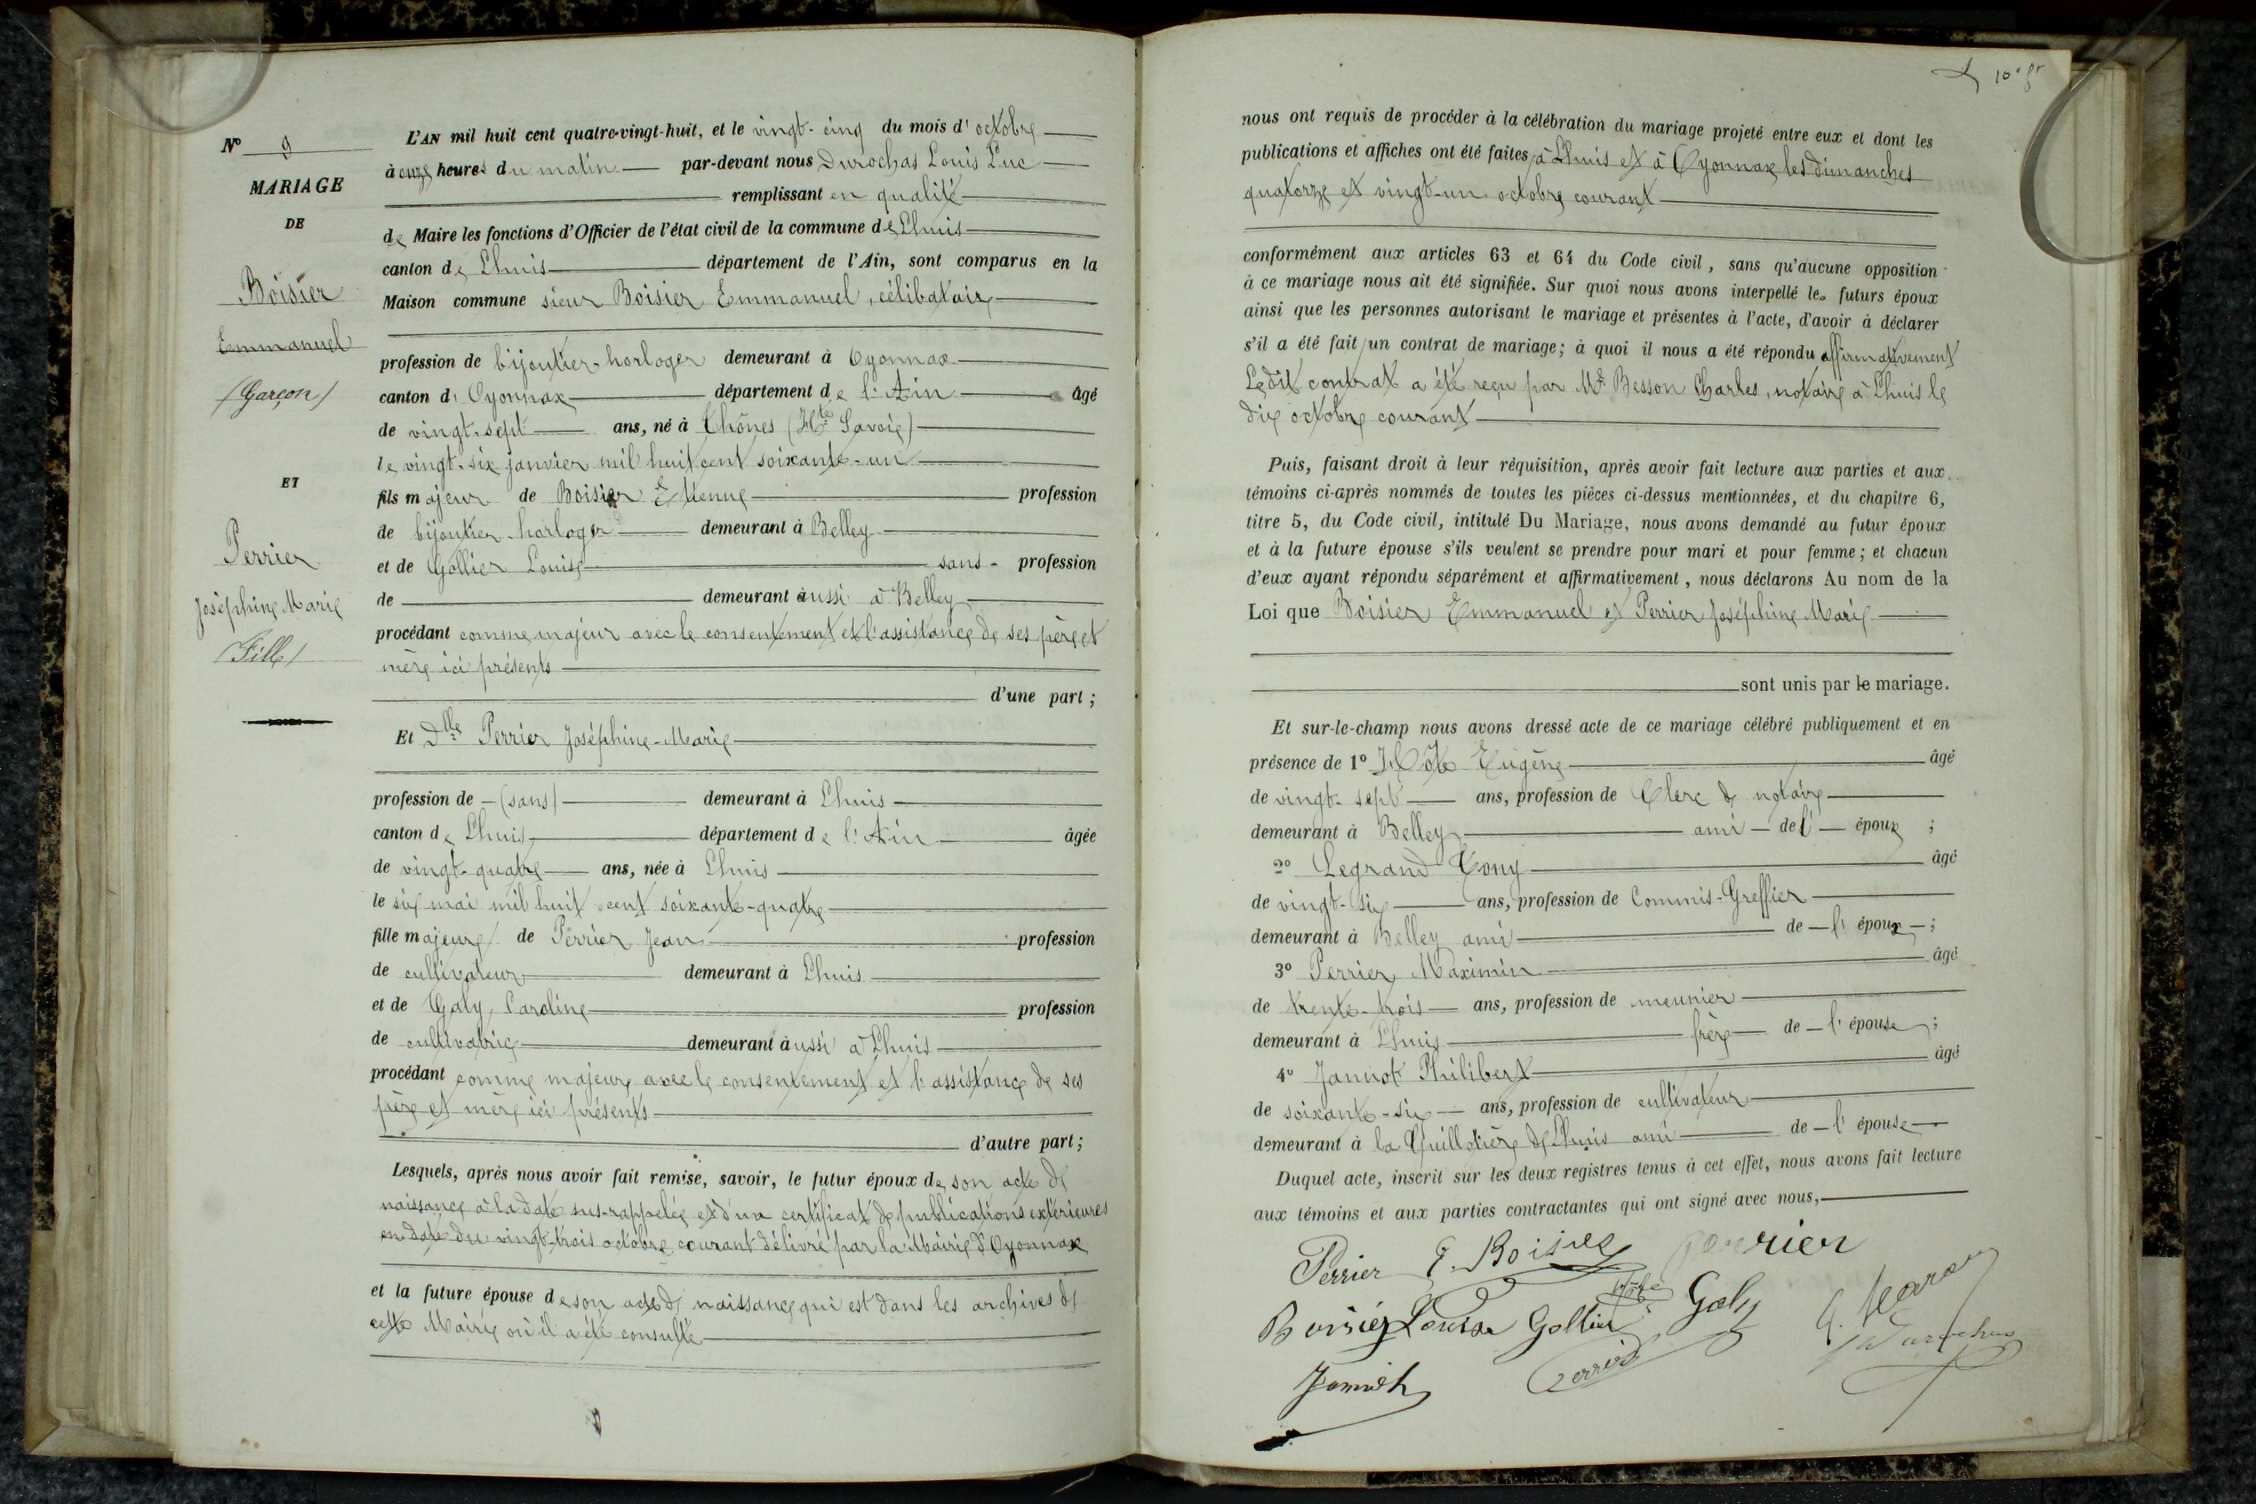 N° 9
MARIAGE
DE
Boisier
Emmanuel
(Garçon)
ET
Perrier
Joséphine Marie
(Fille)
L'AN mil huit cent quatre-vingt-huit, et le vingt-cinq du mois d'octobre
à onze heures du matin par-devant nous Durochas Louis Luc
remplissant en qualité
de Maire les fonctions d'Officier de l'état civil de la commune de Lhuis
canton de Lhuis département de l'Ain, sont comparus en la
Maison commune sieur Boisier Emmanuel, célibataire
profession de bijoutier-horloger demeurant à Oyonnax
canton d'Oyonnax département de l'Ain âgé
de vingt-sept ans, né à Thônes (Hte Savoie)
le vingt-six janvier mil huit cent soixante-un
fils majeur de Boisier Etienne profession
de bijoutier-horloger demeurant à Belley
et de Gollier Louise sans - profession
de demeurant aussi à Belley
procédant comme majeur avec le consentement et l'assistance de ses père et
mère ici présents
d'une part;
Et Dlle Perrier Joséphine-Marie
profession de - (sans) demeurant à Lhuis
canton de Lhuis département de l'Ain âgée
de vingt-quatre ans, née à Lhuis
le six mai mil huit cent soixante-quatre
fille majeure de Perrier Jean profession
de cultivateur demeurant à Lhuis
et de Galy, Caroline profession
de cultivatrice demeurant aussi à Lhuis
procédant comme majeure avec le consentement et l'assistance de ses
père et mère ici présents
d'autre part;
Lesquels, après nous avoir fait remise, savoir, le futur époux de son acte de
naissance à la date sus-rappelée et d'un certificat de publications extérieures
en date du vingt-trois octobre courant délivré par la Mairie d'Oyonnax
et la future épouse de son acte de naissance qui est dans les archives de
cette Mairie où il a été consulté
10e fr
nous ont requis de procéder à la célébration du mariage projeté entre eux et dont les
publications et affiches ont été faites à Lhuis et à Oyonnax les dimanches
quatorze et vingt-un octobre courant
conformément aux articles 63 et 64 du Code civil, sans qu'aucune opposition
à ce mariage nous ait été signifiée. Sur quoi nous avons interpellé les futurs époux
ainsi que les personnes autorisant le mariage et présentes à l'acte, d'avoir à déclarer
s'il a été fait un contrat de mariage; à quoi il nous a été répondu affirmativement
Ledit contrat a été reçu par Me Besson Charles, notaire à Lhuis le
dix octobre courant
Puis, faisant droit à leur réquisition, après avoir fait lecture aux parties et aux
témoins ci-après nommés de toutes les pièces ci-dessus mentionnées, et du chapitre 6,
titre 5, du Code civil, intitulé Du Mariage, nous avons demandé au futur époux
et à la future épouse s'ils veulent se prendre pour mari et pour femme; et chacun
d'eux ayant répondu séparément et affirmativement, nous déclarons Au nom de la
Loi que Boisier Emmanuel et Perrier Joséphine Marie
sont unis par le mariage.
Et sur-le-champ nous avons dressé acte de ce mariage célébré publiquement et en
présence de 1° Eugène âgé
de vingt-sept ans, profession de Clerc de notaire
demeurant à Belley ami - de l' - époux ;
2° Legrand Tony âgé
de vingt-six ans, profession de Commis-Greffier
demeurant à Belley ami de - l'époux - ;
3° Perrier Maximin âgé
de trente-trois ans, profession de meunier
demeurant à Lhuis frère de - l'épouse ;
4° Jannot Philibert âgé
de soixante-six ans, profession de cultivateur
demeurant à la Guillotière de Lhuis ami de - l'épouse
Duquel acte, inscrit sur les deux registres tenus à cet effet, nous avons fait lecture
aux témoins et aux parties contractantes qui ont signé avec nous,
Perrier E. Boisier Perrier
Boisier Louise Gollier Galy
Durochas
Perrier